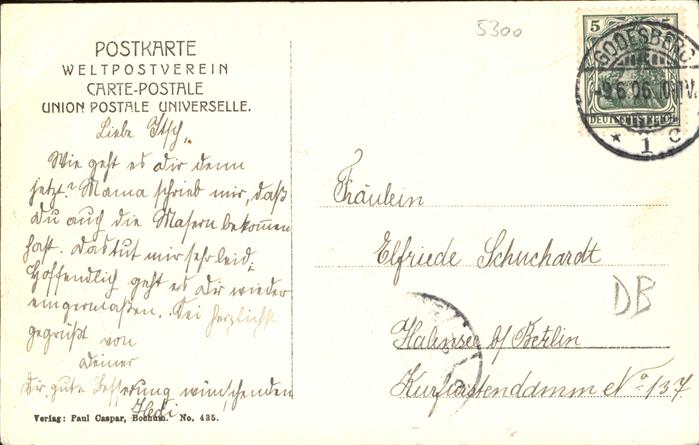 POSTKARTE
WELTPOSTVEREIN
CARTE-POSTALE
UNION POSTALE UNIVERSELLE.
Liebe Itsch,
Wie geht es dir denn
jetzt? Mama schrieb mir, daß
Du auch die Masern bekommen
hast. Das tut mir sehr leid;
hoffendlich geht es dir wieder
eingermaßen. Sei herzlichst
gegrüßt von
Deiner
Dir gute Besserung wünschenden
Hedi
Verlag: Paul Caspar, Bochum. No. 435.
5300
5 5
DEUTSCHES REICH
GODESBERG
-9.6.06. 10-11V.
* 1 c
Fräulein
Elfriede Schuchardt
Halensee b/ Berlin
Kurfürstendamm No 137
DB